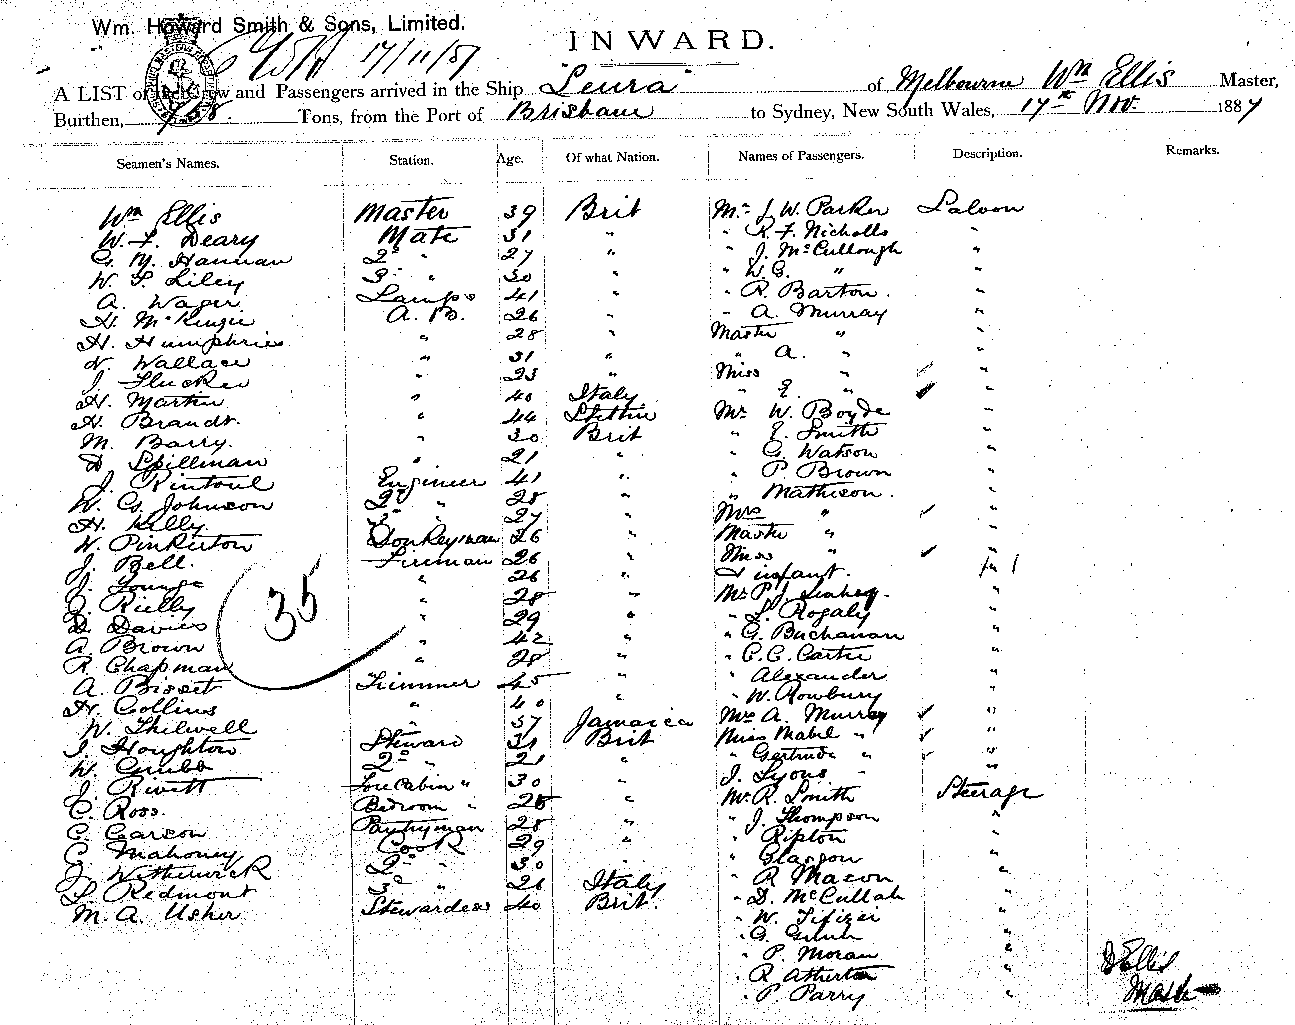 Wm. Howard Smith & Sons, Limited.
17/11/87
INWARD.
A LIST of the Crew and Passengers arrived in the Ship "Leura" of Melbourne Wm Ellis Master,
Burthen, Tons, from the Port of Brisbane to Sydney, New South Wales, 17th Nov. 1887
Seamen's Names. Station. Age. Of what Nation. Names of Passengers. Description. Remarks.
Wm Ellis Master 39 Brit Mr J. W. Parker Saloon
W. F. Deary Mate 31 " " R. F. Nicholls "
G. M. Hannan 2nd " 27 " " J. McCullough "
W. S. Liley 3rd " 30 " " W. G. " "
A. Wager Lamps 41 " " R. Barton "
H. McKinzie A. B. 26 " " A. Murray "
H. Humphries " 28 " Master " "
N. Wallace " 31 " " A. " "
J. " 23 " Miss " "
H. Martin " 40 Italy " E. " "
H. Brandt " 44 Stettin Mr W. Boyde "
M. Barry " 30 Brit " E. Smith "
D. Spillman " 21 " " G. Watson "
J. Rintoul Engineer 41 " " P. Brown "
W. G. Johnson 2nd " 28 " " Mathison "
H. Kelly 3rd " 27 " Mrs " "
W. Pinkerton Donkeyman 26 " Master " "
J. Bell Fireman 26 " Miss " "
J. Younge " 26 " & infant. 1
J. Rielly " 28 " Mr P. J. Leahey "
D. Davies " 29 " " L. Rogaly "
A. Brown " 42 " " G. Buchanan "
R. Chapman " 28 " " C. C. Carter "
A. Bisset Trimmer 45 " " Alexander "
H. Collins " 40 " " W. Rowbury "
W. Thilwell " 37 Jamaica Mrs A. Murray "
J. Houghton Steward 31 Brit Miss Mabel " "
W. Grubb 2nd " 21 " " Gertrude " "
J. Rivett Forecabin " 30 " J. Lyons "
C. Ross. Bedroom " 28 " Mr R. Smith Steerage
C. Carson Pantryman 28 " " J. Thompson "
C. Mahoney Cook 29 " " Ripton "
J. Witherwick 2nd " 30 " " Glasgon "
L. Redmont 3rd " 26 Italy " R. Mason "
M. A. Usher Stewardess 40 Brit. " D. McCullah "
" W. "
" G. "
" P. Moran "
" R. Atherton "
" P. Parry "
35
Ellis
Master